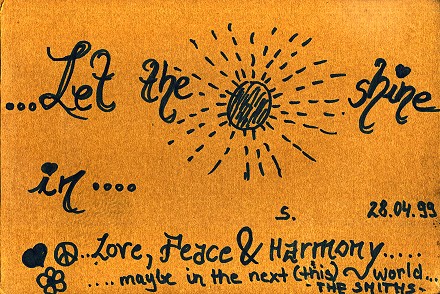 ...Let the shine
in....
s. 28.04.99
...Love, Peace & Harmony.....
....maybe in the next (this) world...
-THE SMITHS-